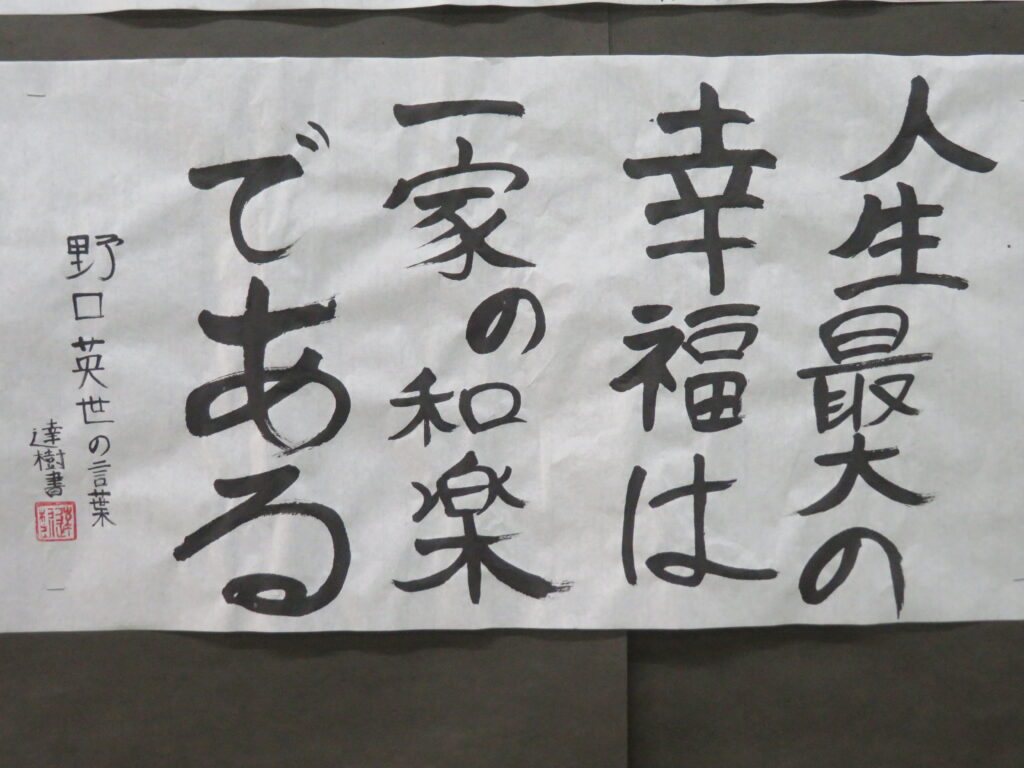 人生最大の
幸福は
一家の和楽
である
野口英世の言葉
達樹書